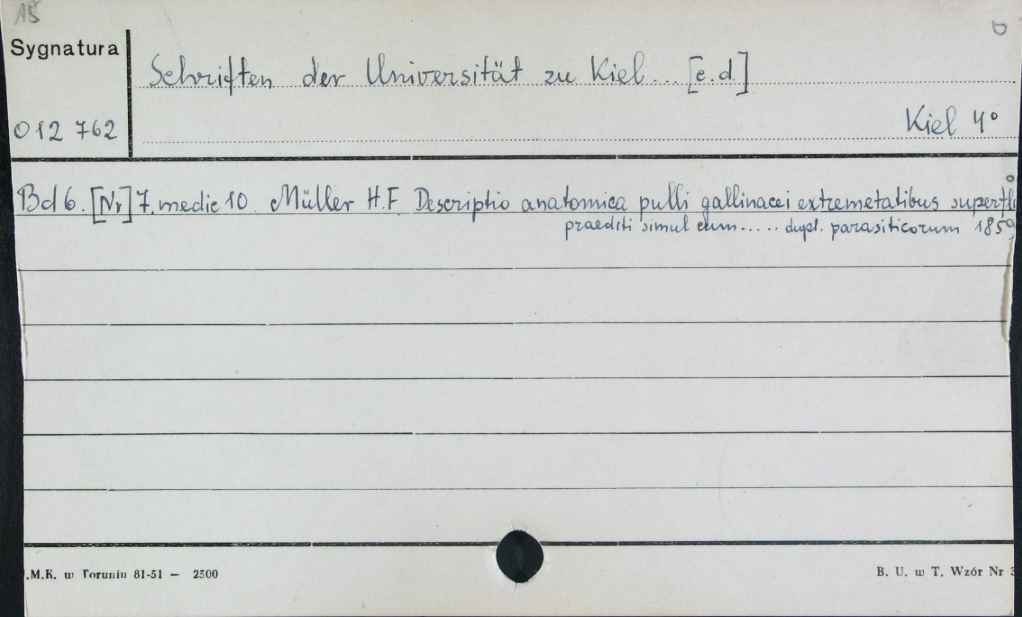 15
Sygnatura
Schriften der Universität zu Kiel... [e.d]
012 762
Kiel 4°
Bd 6. [Nr] 7. medic 10. Müller H.F. Descriptio anatomica pulli gallinacei extremetatibus superfl
praediti simul cum..... dupl. parasiticorum 1859
.M.K. w Toruniu 81-51 — 2500
B. U. w T. Wzór Nr 3